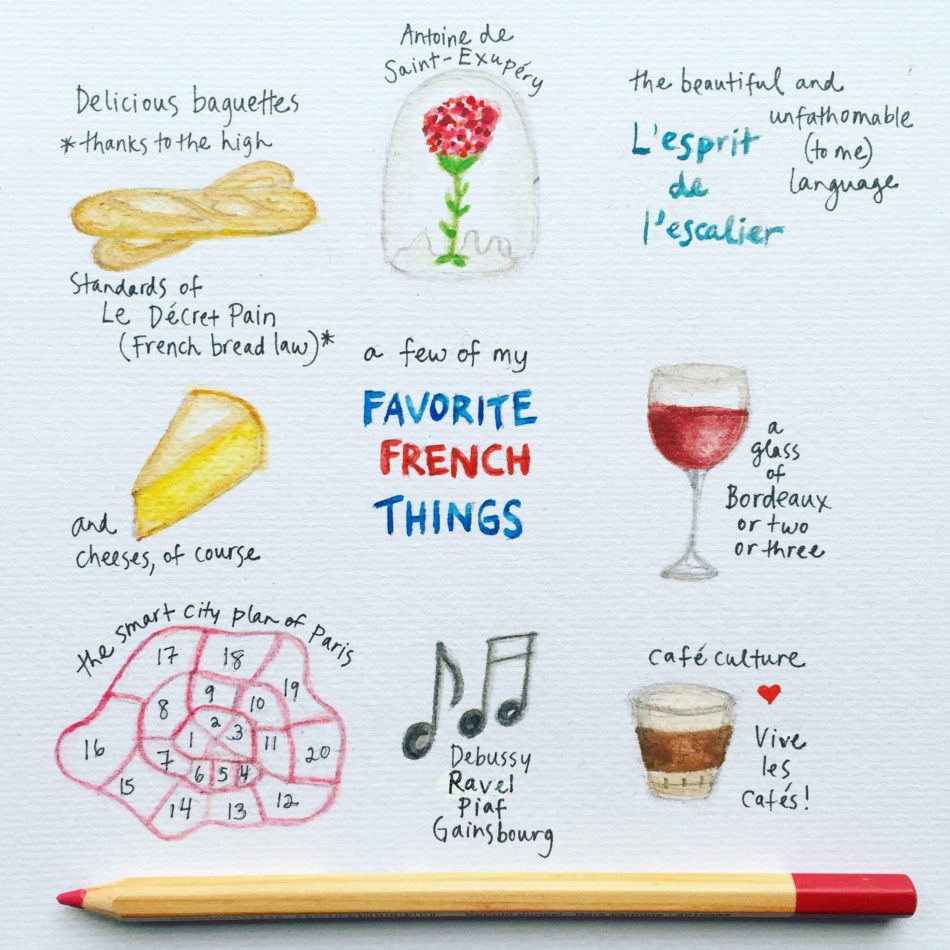 Delicious baguettes
*thanks to the high
Standards of
Le Décret Pain
(French bread law)*
Antoine de
Saint-Exupéry
the beautiful and
unfathomable
(to me)
language
L'esprit
de
l'escalier
a few of my
FAVORITE
FRENCH
THINGS
and
cheeses, of course
a
glass
of
Bordeaux
or two
or three
the smart city plan of Paris
17 18
19
9
8 10
2
1 3 11
16 20
7
6 5 4
15
14 13 12
Debussy
Ravel
Piaf
Gainsbourg
Café culture
Vive
les
Cafés!